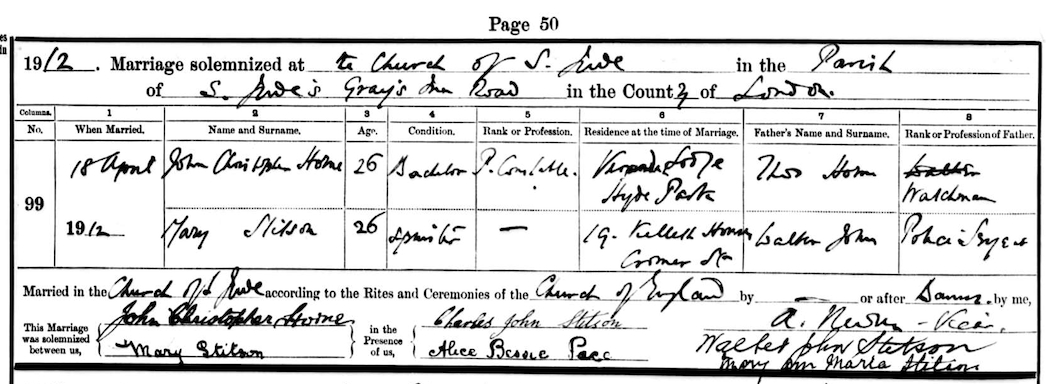 Page 50
1912. Marriage solemnized at the Church of S. Jude in the Parish
of S. Jude's Gray's Inn Road in the County of London.
Columns. 1 2 3 4 5 6 7 8
No. When Married. Name and Surname. Age. Condition. Rank or Profession. Residence at the time of Marriage. Father's Name and Surname. Rank or Profession of Father.
99
18 April John Christopher Horne 26 Bachelor P. Constable. Lodge Hyde Park Thos Horne Watchman
1912 Mary Stitson 26 Spinster — 19. Killeth Houses Cromer St Walter John Police Sergeant
Married in the Church of S Jude according to the Rites and Ceremonies of the Church of England by — or after Banns. by me,
This Marriage was solemnized between us, John Christopher Horne in the Presence of us, Charles John Stitson A. - Vicar.
Mary Stitson Alice Bessie Pace Walter John Stitson
Mary Ann Maria Stitson